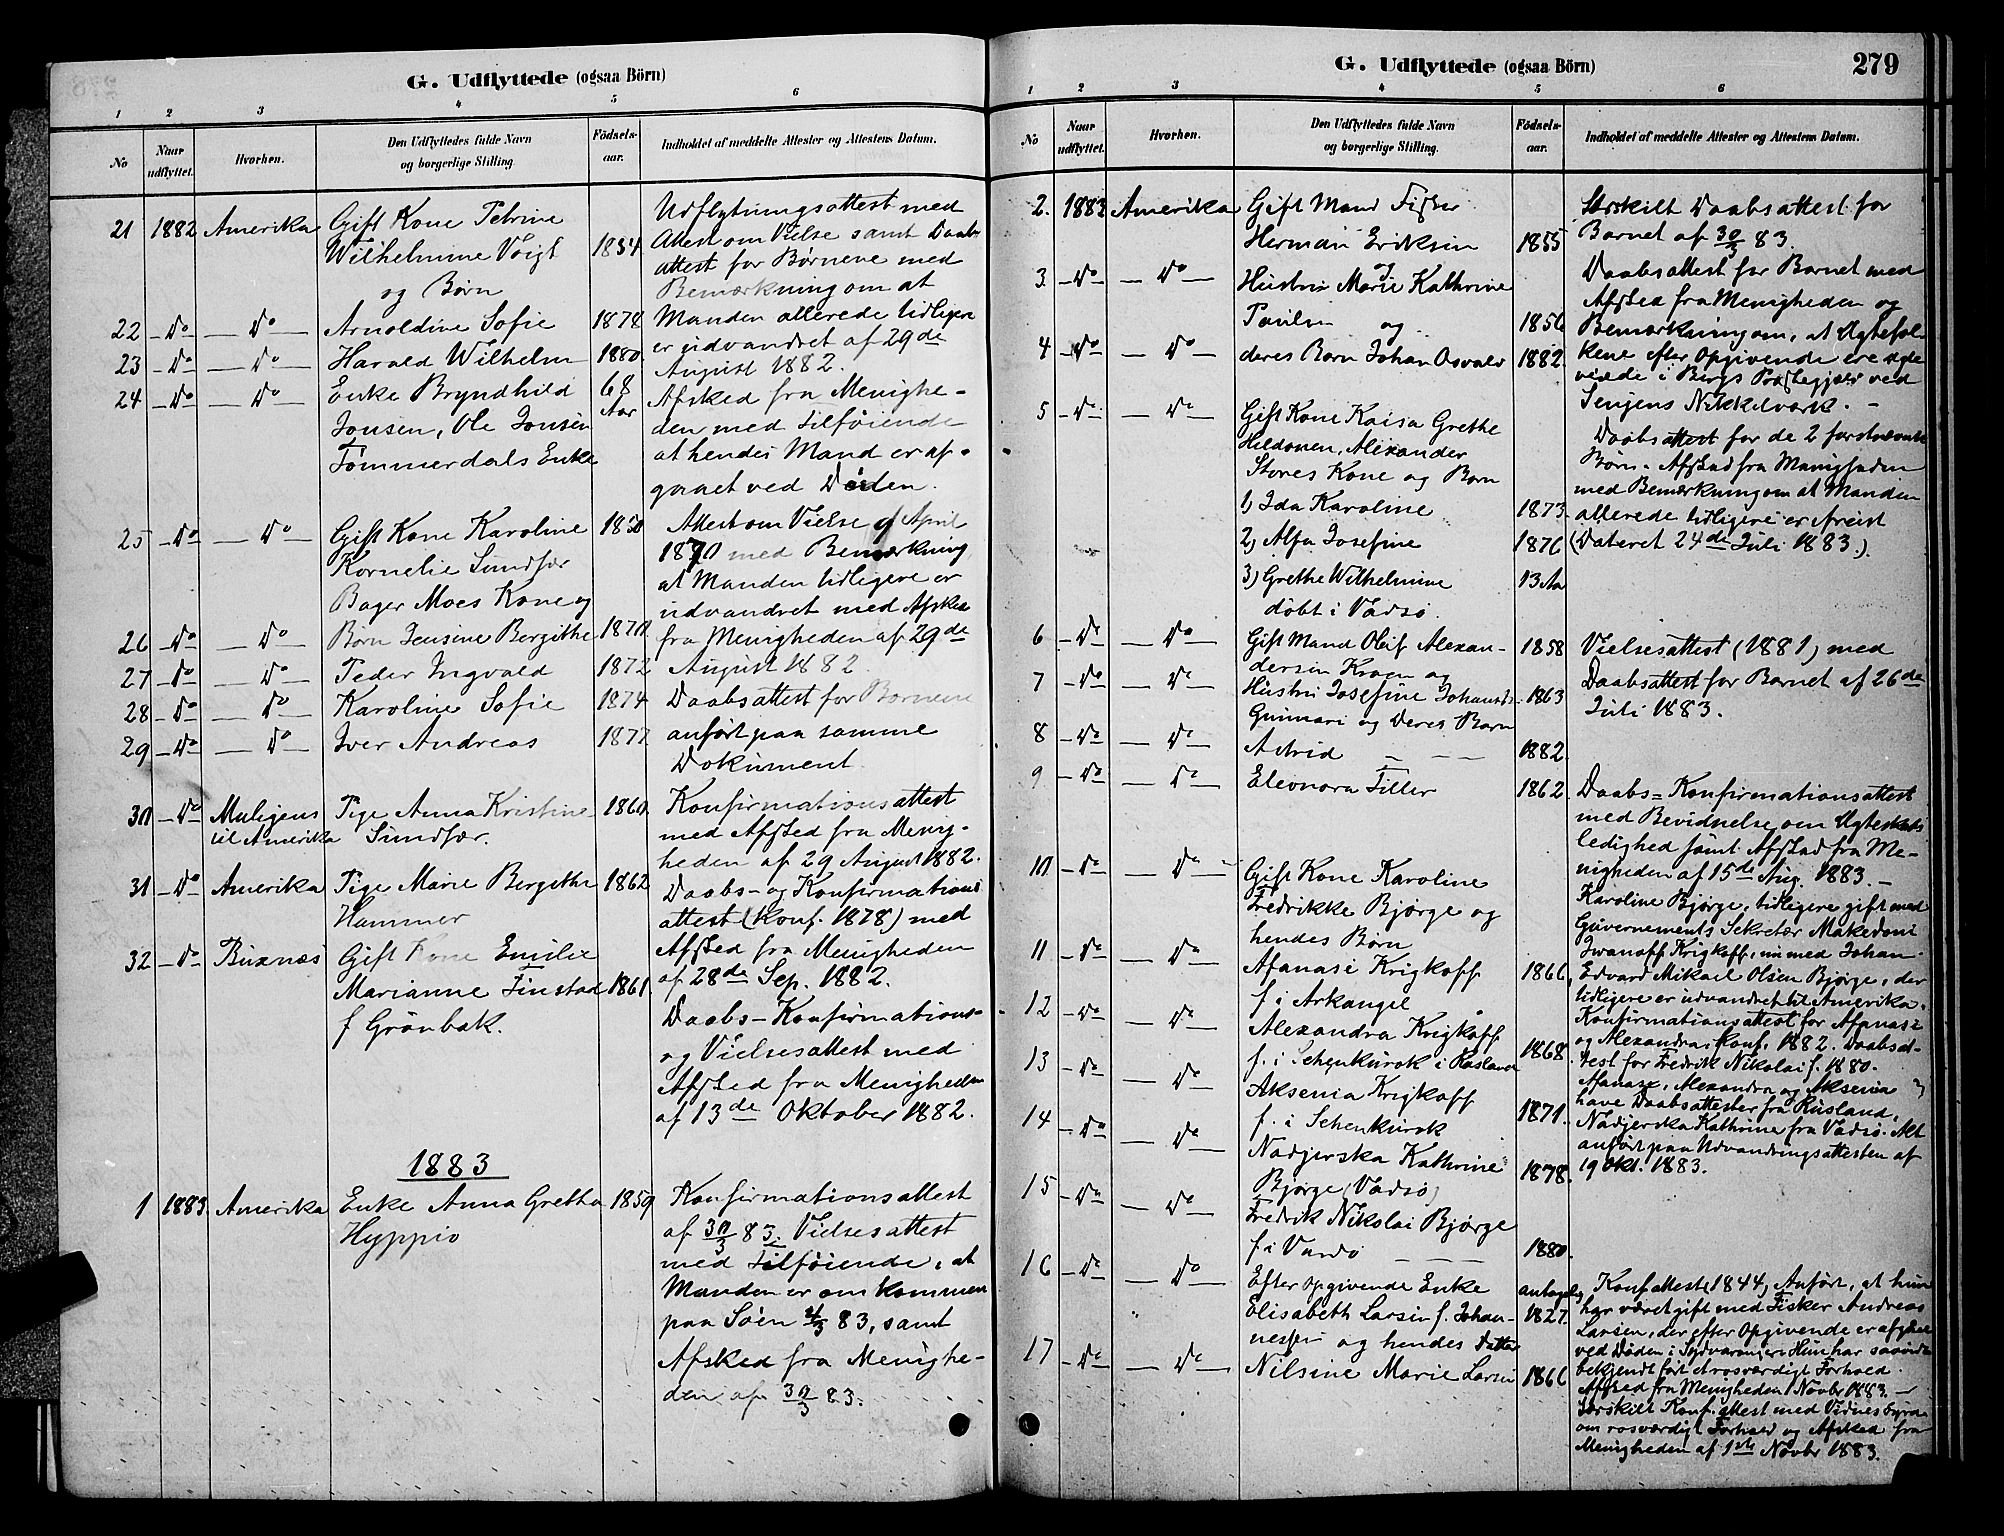 G. Udflyttede (ogsaa Börn)
1 2 3 4 5 6
No
Naar udflyttet.
Hvorhen.
Den Udflyttedes fulde Navn og borgerlige Stilling.
Födsels-aar.
Indholdet af meddelte Attester og Attestens Datum.
21 1882 Amerika Gift Kone Petrine
Wilhelmine Voigt 1854
og Børn
22 Do Do Arnoldine Sofie 1878
23 Do Do Harald Wilhelm 1880
24 Do Do Enke Bryndhild 68 Aar
Jonsen, Ole Jonsen
Tømmerdals Enke
25 Do Do Gift Kone Karoline 1850
Kornelie Sundfær
Bager Moes Kone og
26 Do Do Børn Jensine Bergithe 1870
27 Do Do Peder Ingvald 1872
28 Do Do Karoline Sofie 1874
29 Do Do Iver Andreas 1877
30 Do Muligens Pige Anna Kristine 1860
til Amerika Sundfær.
31 Do Amerika Pige Marie Bergithe 1862
Hammer
32 Do Buxnæs Gift Kone Emilie
Marianne Finstad 1861
f Grønbæk.
1883
1 1883 Amerika Enke Anna Gretha 1859
Hyppiö
Udflytningsattest med
Attest om Vielse samt Daabs
attest for Børnene med
Bemærkning om at
Manden allerede tidligere
er udvandret af 29de
August 1882.
Afsked fra Menighe-
den med Tilføiende
at hendes Mand er af-
gaaet ved Døden.
Attest om Vielse af April
1870 med Bemærkning
at Manden tidligere er
udvandret med Afsked
fra Menigheden af 29de
August 1882
Daabsattest for Børnene
anført paa samme
Dokument.
Konfirmationsattest
med Afsked fra Menig-
heden af 29 August 1882.
Daabs- og Konfirmations
attest (Konf. 1878) med
Afsked fra Menigheden
af 28de Sep. 1882.
Daabs- Konfirmations-
og Vielsesattest med
Afsked fra Menigheden
af 13de Oktober 1882.
Konfirmationsattest
af 30/3 83. Vielsesattest
med Tilføiende, at
Manden er omkommen
paa Søen 4/3 83, samt
Afsked fra Menighe-
den af 30/3 83.
G. Udflyttede (ogsaa Börn)
279
1 2 3 4 5 6
No
Naar udflyttet.
Hvorhen.
Den Udflyttedes fulde Navn og borgerlige Stilling.
Födsels-aar.
Indholdet af meddelte Attester og Attestens Datum.
2. 1883 Amerika Gift Mand Fisker
Herman Eriksen 1855
og
3 Do Do Hustru Marie Kathrine
Paulsen og 1856
4 Do Do deres Barn Johan Osvald 1882
5 Do Do Gift Kone Kaisa Grethe
Heldonen, Alexander
Stores Kone og Børn
1) Ida Karoline 1873
2) Alfa Josefine 1876
3) Grethe Wilhelmine 13 Aar
døbt i Vadsø.
6 Do Do Gift Mand Oluf Alexan- 1858
dersen Kroen og
7 Do Do Hustru Josefine Johansd. 1863
Gunnari og Deres Barn
8 Do Do Astrid 1882
9 Do Do Eleonora Tiller 1862
10 Do Do Gift Kone Karoline
Fredrikke Bjørge og
hendes Børn
11 Do Do Afanasi Krigkoff 1866
f i Arkangel
12 Do Do Alexandra Krigkoff
f. i Schenkursk i Rusland 1868
13 Do Do Aksenia Krigkoff
f. i Schenkursk 1871
14 Do Do Nadjerska Kathrine
Bjørge (Vadsø) 1878
15 Do Do Fredrik Nikolai Bjørge
f i Vardø 1880
16 Do Do Efter Opgivende Enke antagelig
Elisabeth Larsen f. Johan- 1827
nessen og hendes Datter
17 Do Do Nilsine Marie Larsen 1866
Særskilt Daabsattest for
Barnet af 30/3 83.
Daabsattest for Barnet med
Afsked fra Menigheden og
Bemærkning om, at Ægtefol-
kene efter Opgivende ere ægte
viede i Bergs Præstegjæld ved
Senjens Nikkelværk.
Daabsattest for de 2 førstnævnte
Børn. Afsked fra Menigheden
med Bemærkning om at Manden
allerede tidligere er Afreist
(Dateret 24de Juli 1883.)
Vielsesattest (1881) med
Daabsattest for Barnet af 26de
Juli 1883.
Daabs- Konfirmationsattest
med Bevidnelse om Ægteskabs
ledighed samt Afsked fra Me-
nigheden af 15de Aug. 1883.
Karoline Bjørge, tidligere gift med
Guvernements Sekretær Makedoni
Iwanoff Krigkoff, nu med Johan
Edvard Mikael Olsen Bjørge, der
tidligere er udvandret til Amerika.
Konfirmationsattest for Afanasi
og Alexandra: Konf. 1882. Daabsat-
test for Fredrik Nikolai f. 1880.
Afanasi, Alexandra og Aksenia
have Daabsattester fra Rusland,
Nadjerska Kathrine fra Vadsø. Alt
anført paa Udvandringsattesten af
19 Okt. 1883.
Konfattest (1844) Anført, at hun
har været gift med Fisker Andreas
Larsen, der efter Opgivende er afgaaet
ved Døden i Sydvaranger. Hun har saavidt
bekjendt ført et rosværdigt Forhold.
Afsked fra Menigheden 1 Novbr 1883.
Særskilt Konf. attest med Vidnesbyrd
om rosværdigt Forhold og Afsked fra
Menigheden af 1ste Novbr 1883.